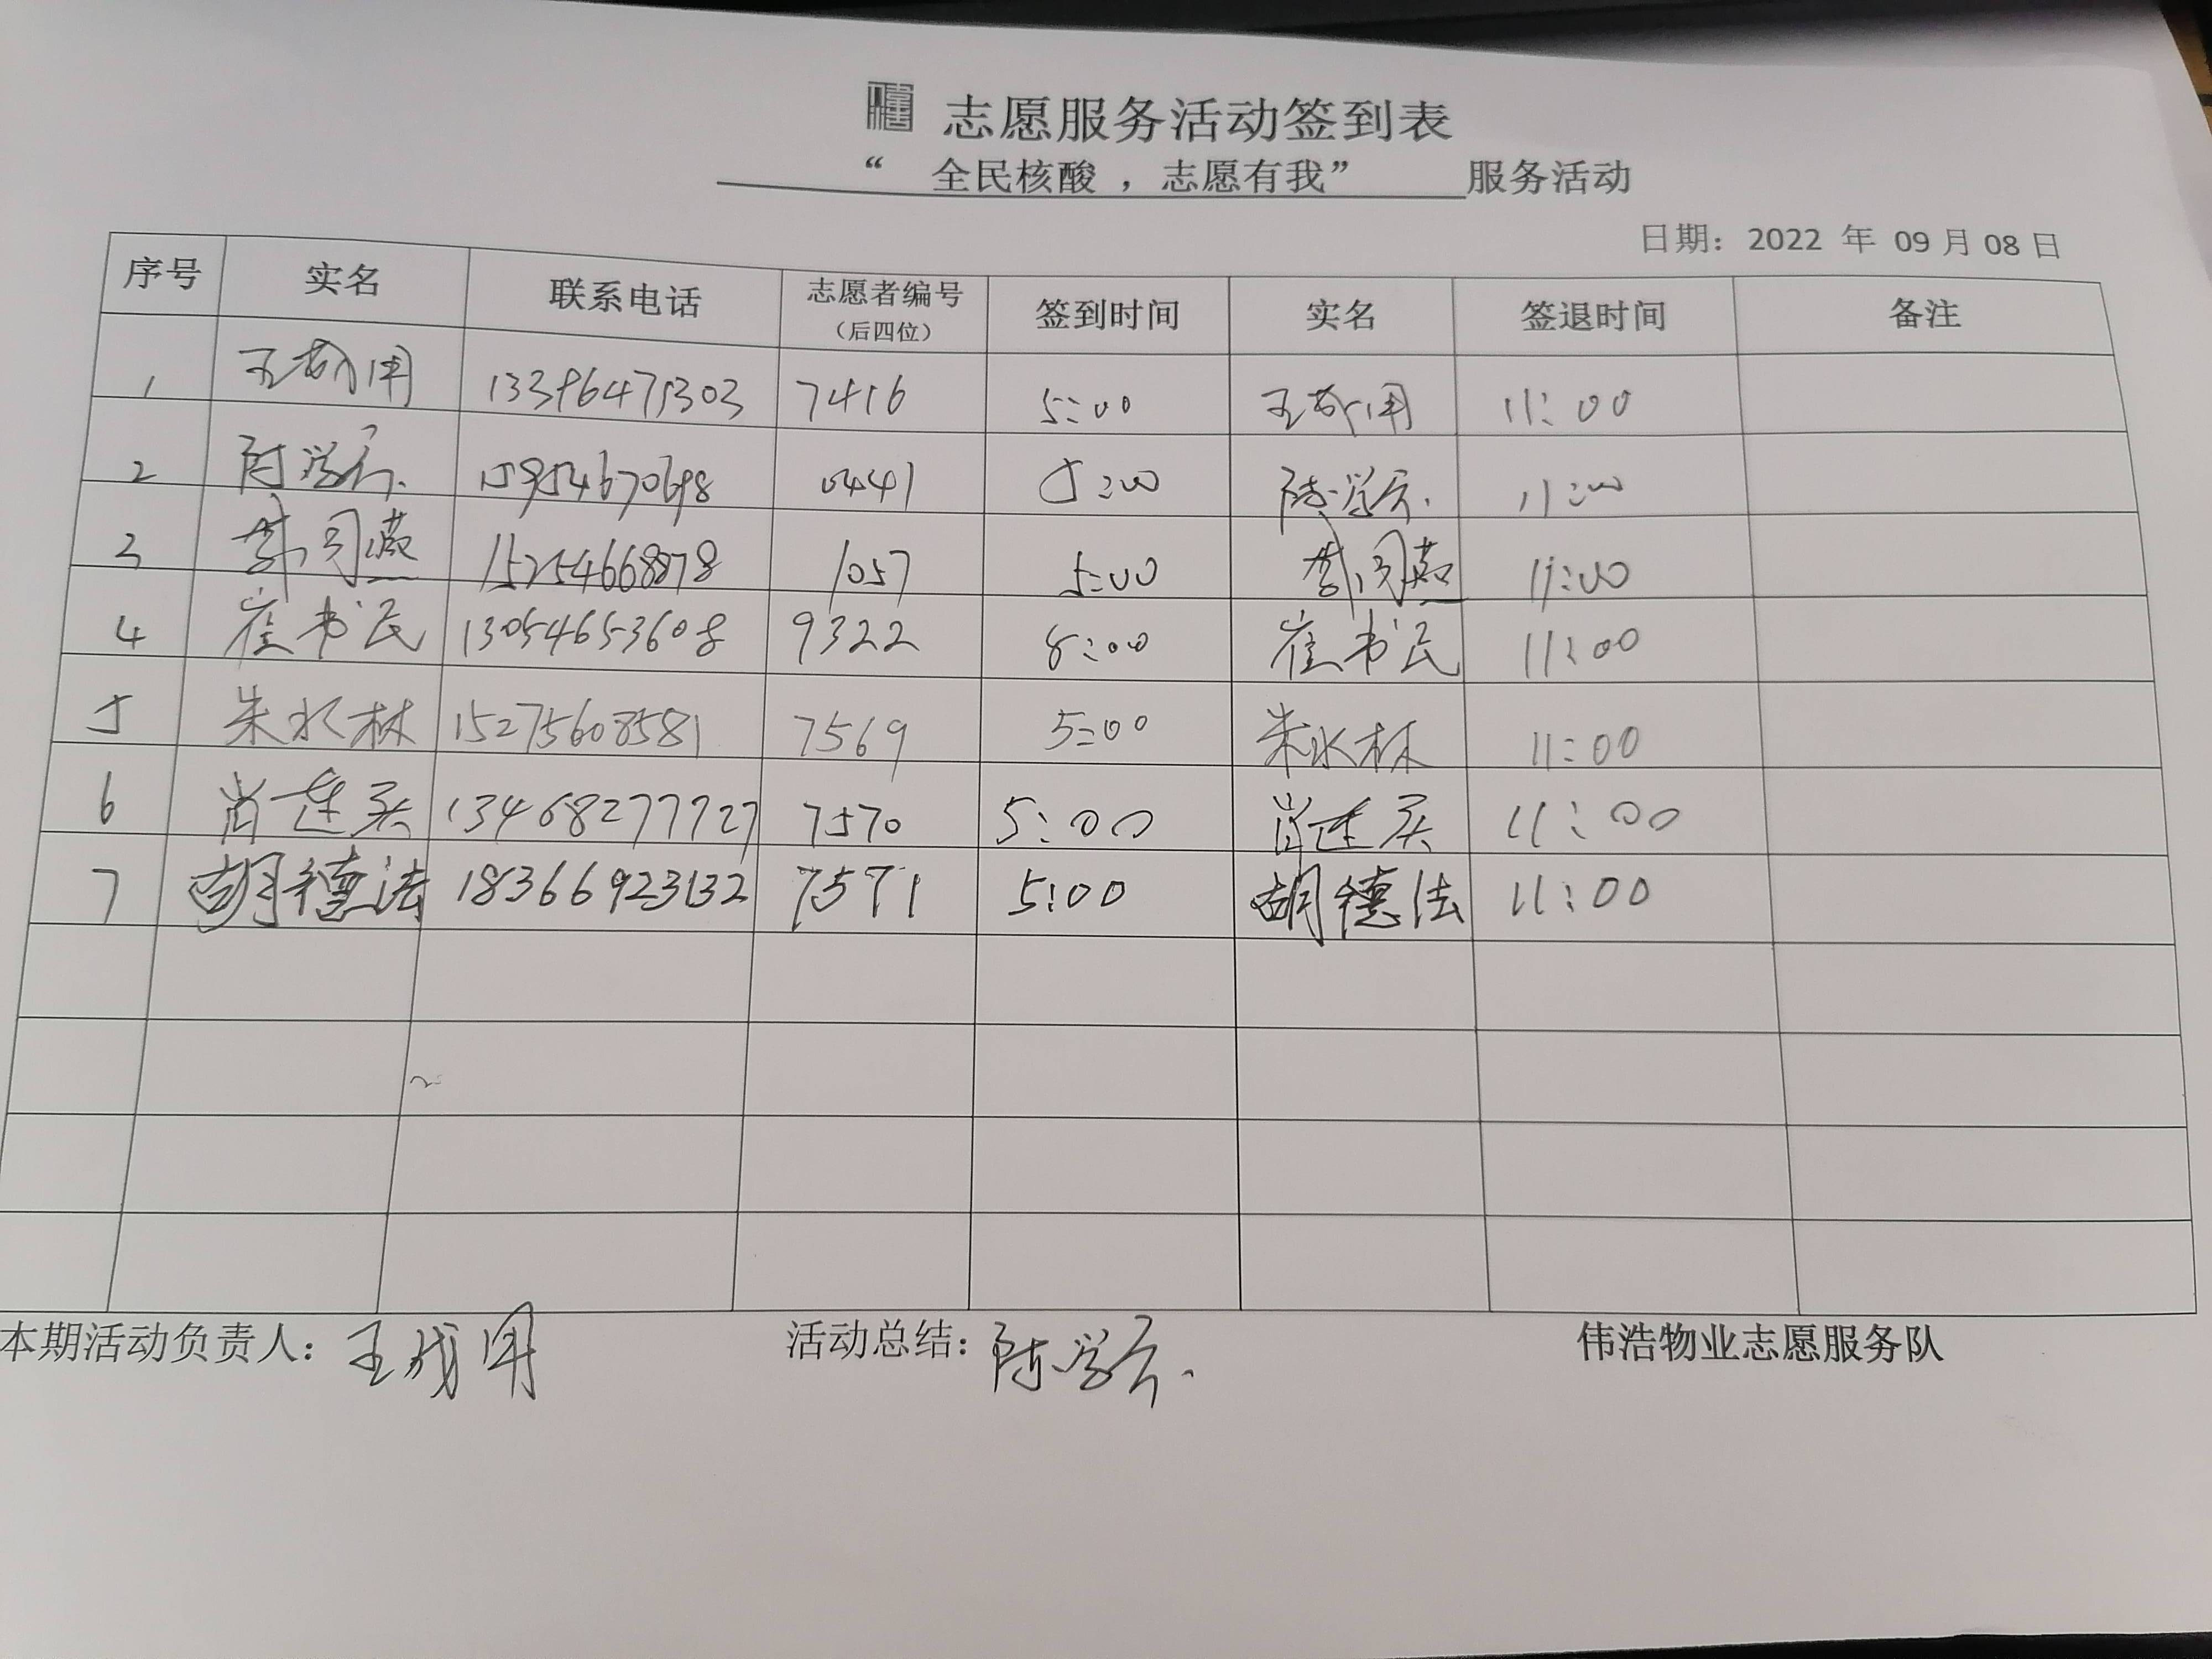 志愿服务活动签到表
“ 全民核酸 ，志愿有我” 服务活动
日期：2022 年 09 月 08 日
序号 实名 联系电话 志愿者编号（后四位） 签到时间 实名 签退时间 备注
1 7416 5:00 11:00
2 0441 5:00 11:00
3 15254668878 1057 5:00 11:00
4 崔书民 13054653608 9322 8:00 崔书民 11:00
5 朱水林 15275608581 7569 5:00 朱水林 11:00
6 13468277727 7570 5:00 11:00
7 胡德法 18366923132 7571 5:00 胡德法 11:00
本期活动负责人： 活动总结： 伟浩物业志愿服务队